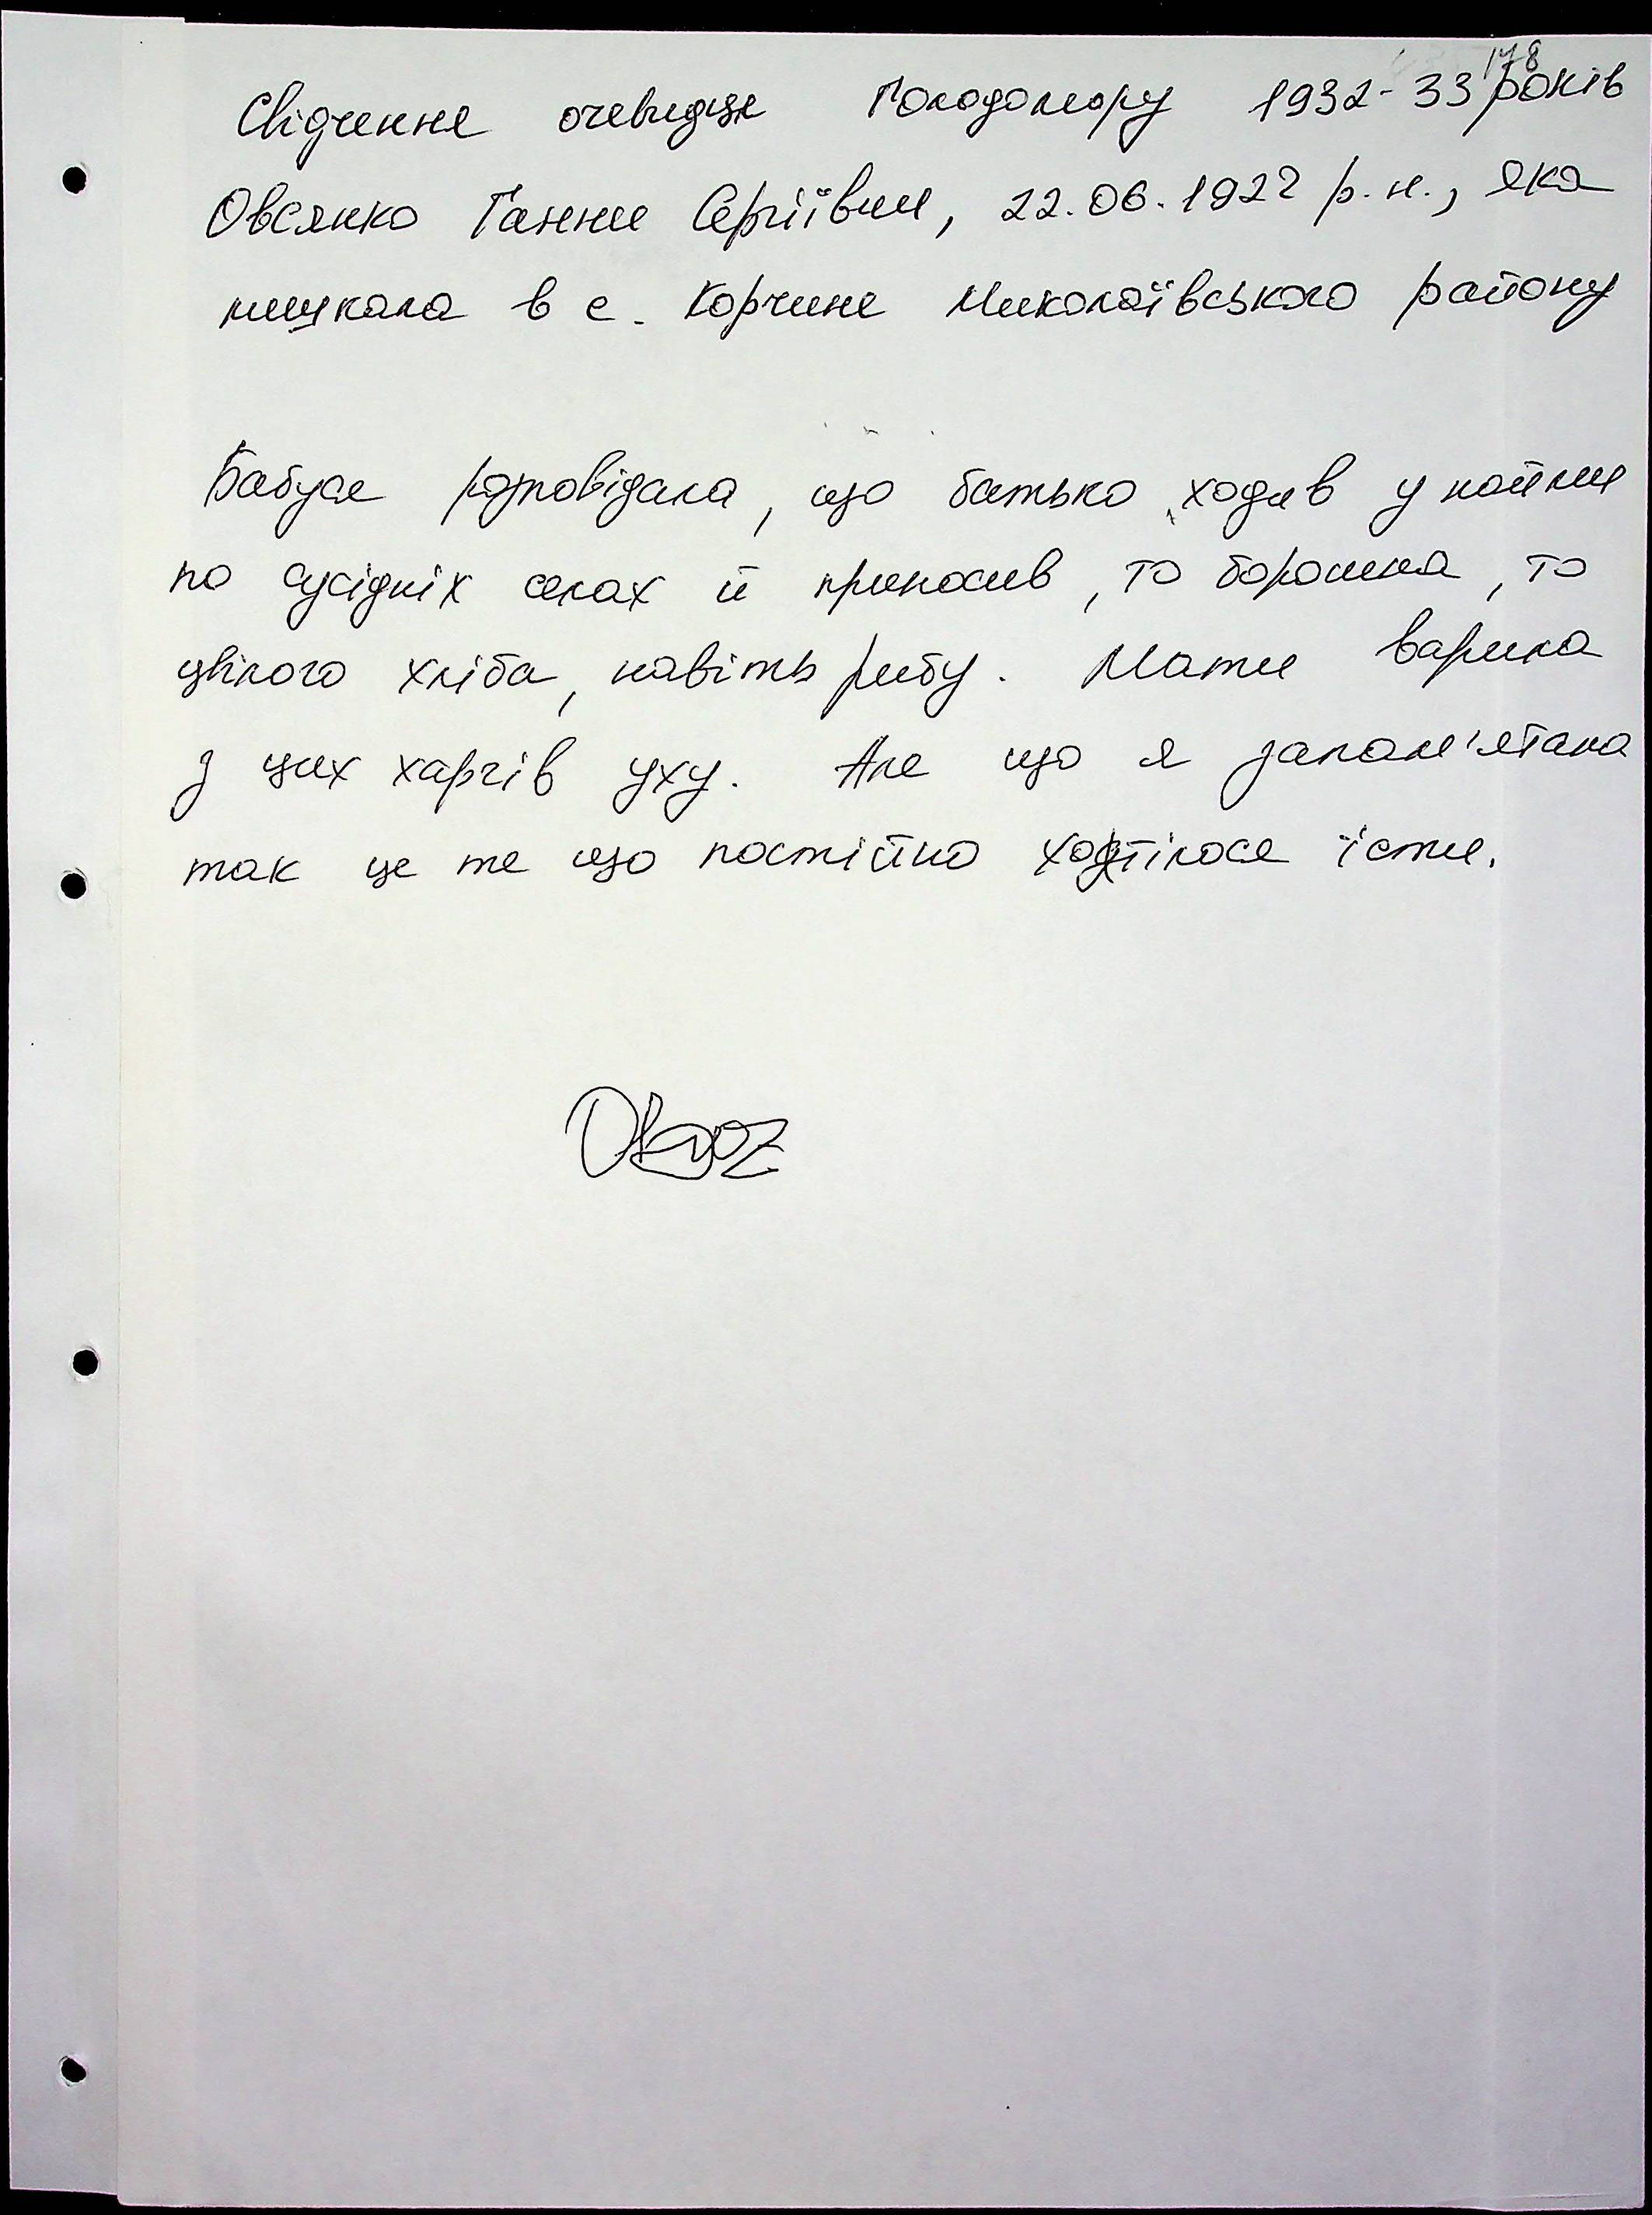 178
Свідчення очевидця Голодомору 1932-33 років
Овсянко Ганни Сергіївни, 22.06.1922 р.н., яка
мешкала в с. Корчине Миколаївського району
Бабуся розповідала, що батько ходив у найми
по сусідніх селах й приносив, то борошна, то
цвілого хліба, навіть рибу. Мати варила
з цих харчів уху. Але що я запам'ятала
так це те що постійно хотілося їсти.